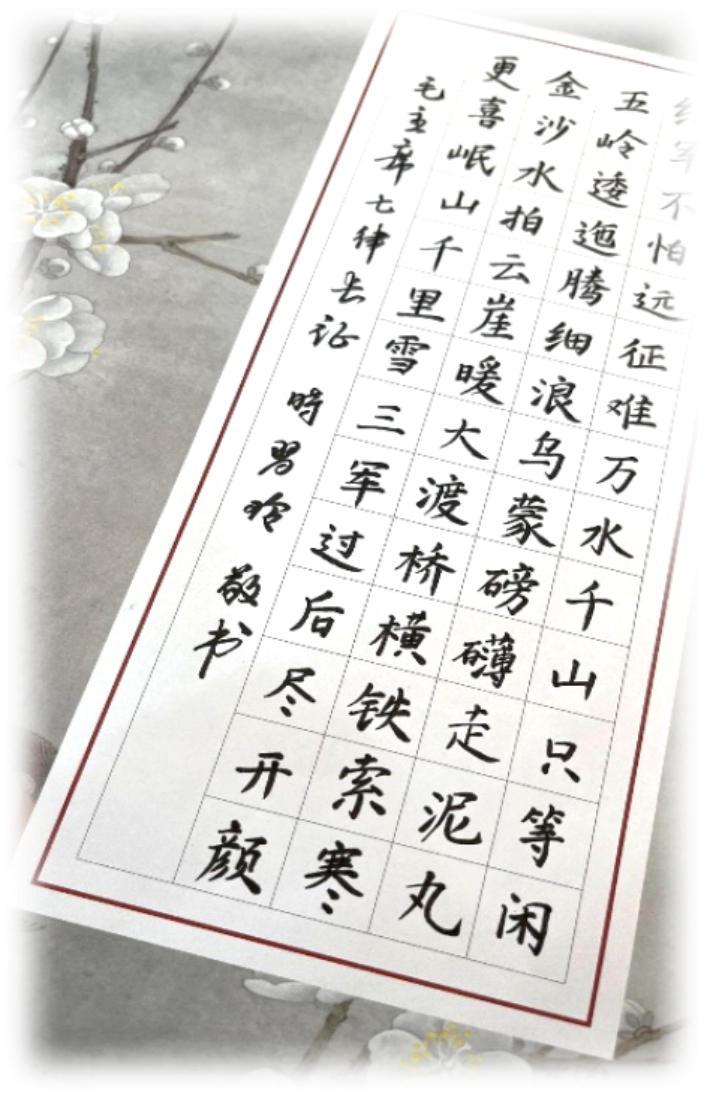 红军不怕远征难万水千山只等闲
五岭逶迤腾细浪乌蒙磅礴走泥丸
金沙水拍云崖暖大渡桥横铁索寒
更喜岷山千里雪三军过后尽开颜
毛主席七律长征 時 玲 敬书